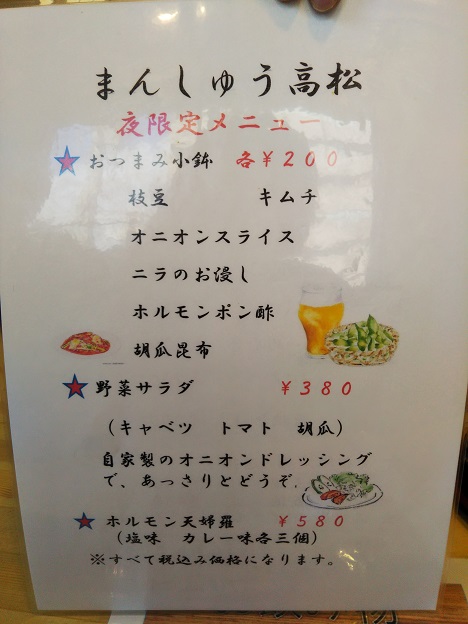 まんしゅう高松
夜限定メニュー
おつまみ小鉢 各￥200
枝豆 キムチ
オニオンスライス
ニラのお浸し
ホルモンポン酢
胡瓜昆布
野菜サラダ ￥380
（キャベツ トマト 胡瓜）
自家製のオニオンドレッシング
で、あっさりとどうぞ。
ホルモン天婦羅 ￥580
（塩味 カレー味各三個）
※すべて税込み価格になります。